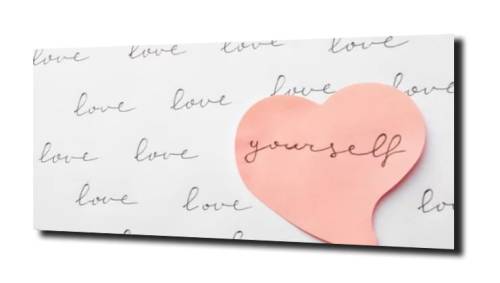 love love love love
love love love love
love love yourself
love love lo